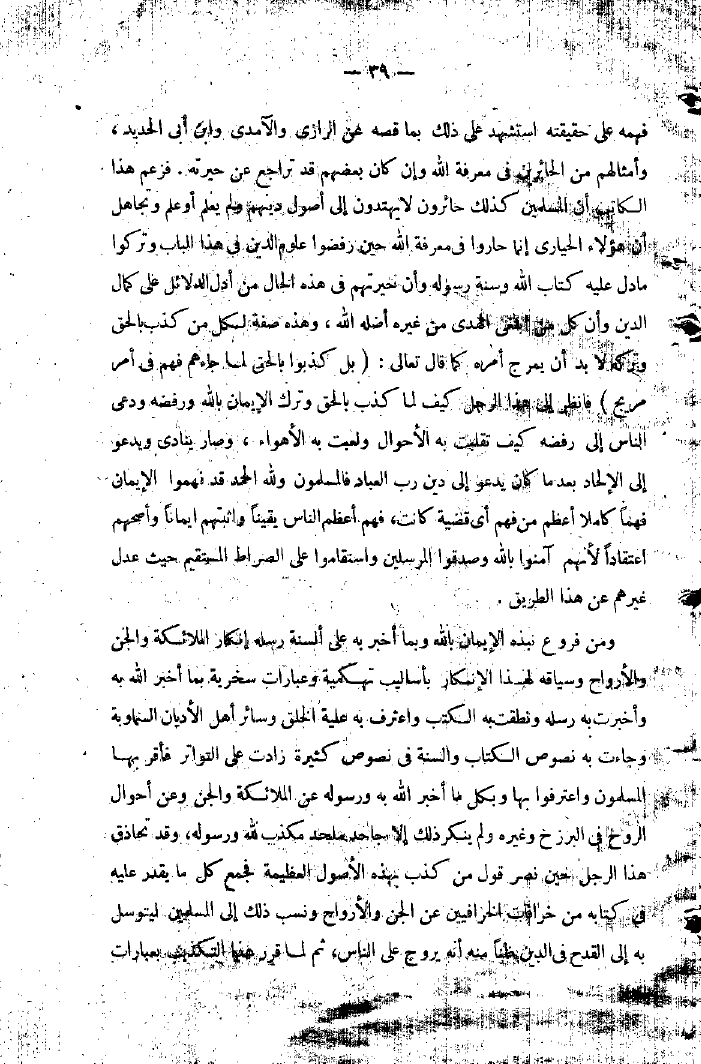 — ٣٩ —
فهمه على حقيقته استشهد على ذلك بما قصه عن الرازي والآمدى وابن أبى الحديد ،
وأمثالهم من الحائرين فى معرفة الله وإن كان بعضهم قد تراجع عن حيرته . فزعم هذا
الكاتب أن المسلمين كذلك حائرون لايهتدون إلى أصول دينهم ولم يعلم أوعلم وتجاهل
أن هؤلاء الحيارى إنما حاروا فى معرفة الله حين رفضوا علوم الدين فى هذا الباب وتركوا
مادل عليه كتاب الله وسنة رسوله وأن حيرتهم فى هذه الحال من أدل الدلائل على كمال
الدين وأن كل من ابتغى الهدى من غيره أضله الله ، وهذه صفة لـكل من كذب بالحق
وتركه لا بد أن يمرج أمره كما قال تعالى : ( بل كذبوا بالحق لمـا جاءهم فهم فى أمر
مريج ) فانظر إلى هذا الرجل كيف لما كذب بالحق وترك الإيمان بالله ورفضه ودعى
الناس إلى رفضه كيف تقلبت به الأحوال ولعبت به الأهواء ، وصار ينادى ويدعو
إلى الإلحاد بعد ما كان يدعو إلى دين رب العباد فالمسلمون ولله الحمد قد فهموا الإيمان
فهماً كاملا أعظم من فهم أى قضية كانت، فهم أعظم الناس يقيناً واثبتهم ايماناً وأصحهم
اعتقاداً لأنهم آمنوا بالله وصدقوا المرسلين واستقاموا على الصراط المستقيم حيث عدل
غيرهم عن هذا الطريق .
ومن فروع نبذه الإيمان بالله وبما أخبر به على ألسنة رسله إنكار الملائكة والجن
والأرواح وسياقه لهـذا الإنكار بأساليب تهكمية وعبارات سخرية بما أخبر الله به
وأخبرت به رسله ونطقت به الكتب واعترف به علية الخلق وسائر أهل الأديان السماوية
وجاءت به نصوص الكتاب والسنة فى نصوص كثيرة زادت على التواتر فأقر بهـا
المسلمون واعترفوا بها وبكل ما أخبر الله به ورسوله عن الملائكة والجن وعن أحوال
الروح فى البرزخ وغيره ولم ينكر ذلك إلا جاحد ملحد مكذب لله ورسوله، وقد تحاذق
هذا الرجل حين نصر قول من كذب بهذه الأصول العظيمة فجمع كل ما يقدر عليه
فى كتابه من خرافات الخرافيين عن الجن والأرواح ونسب ذلك إلى المسلمين ليتوسل
به إلى القدح فى الدين ظناً منه أنه يروج على الناس، ثم لما قرر هذا التكذيب بعبارات